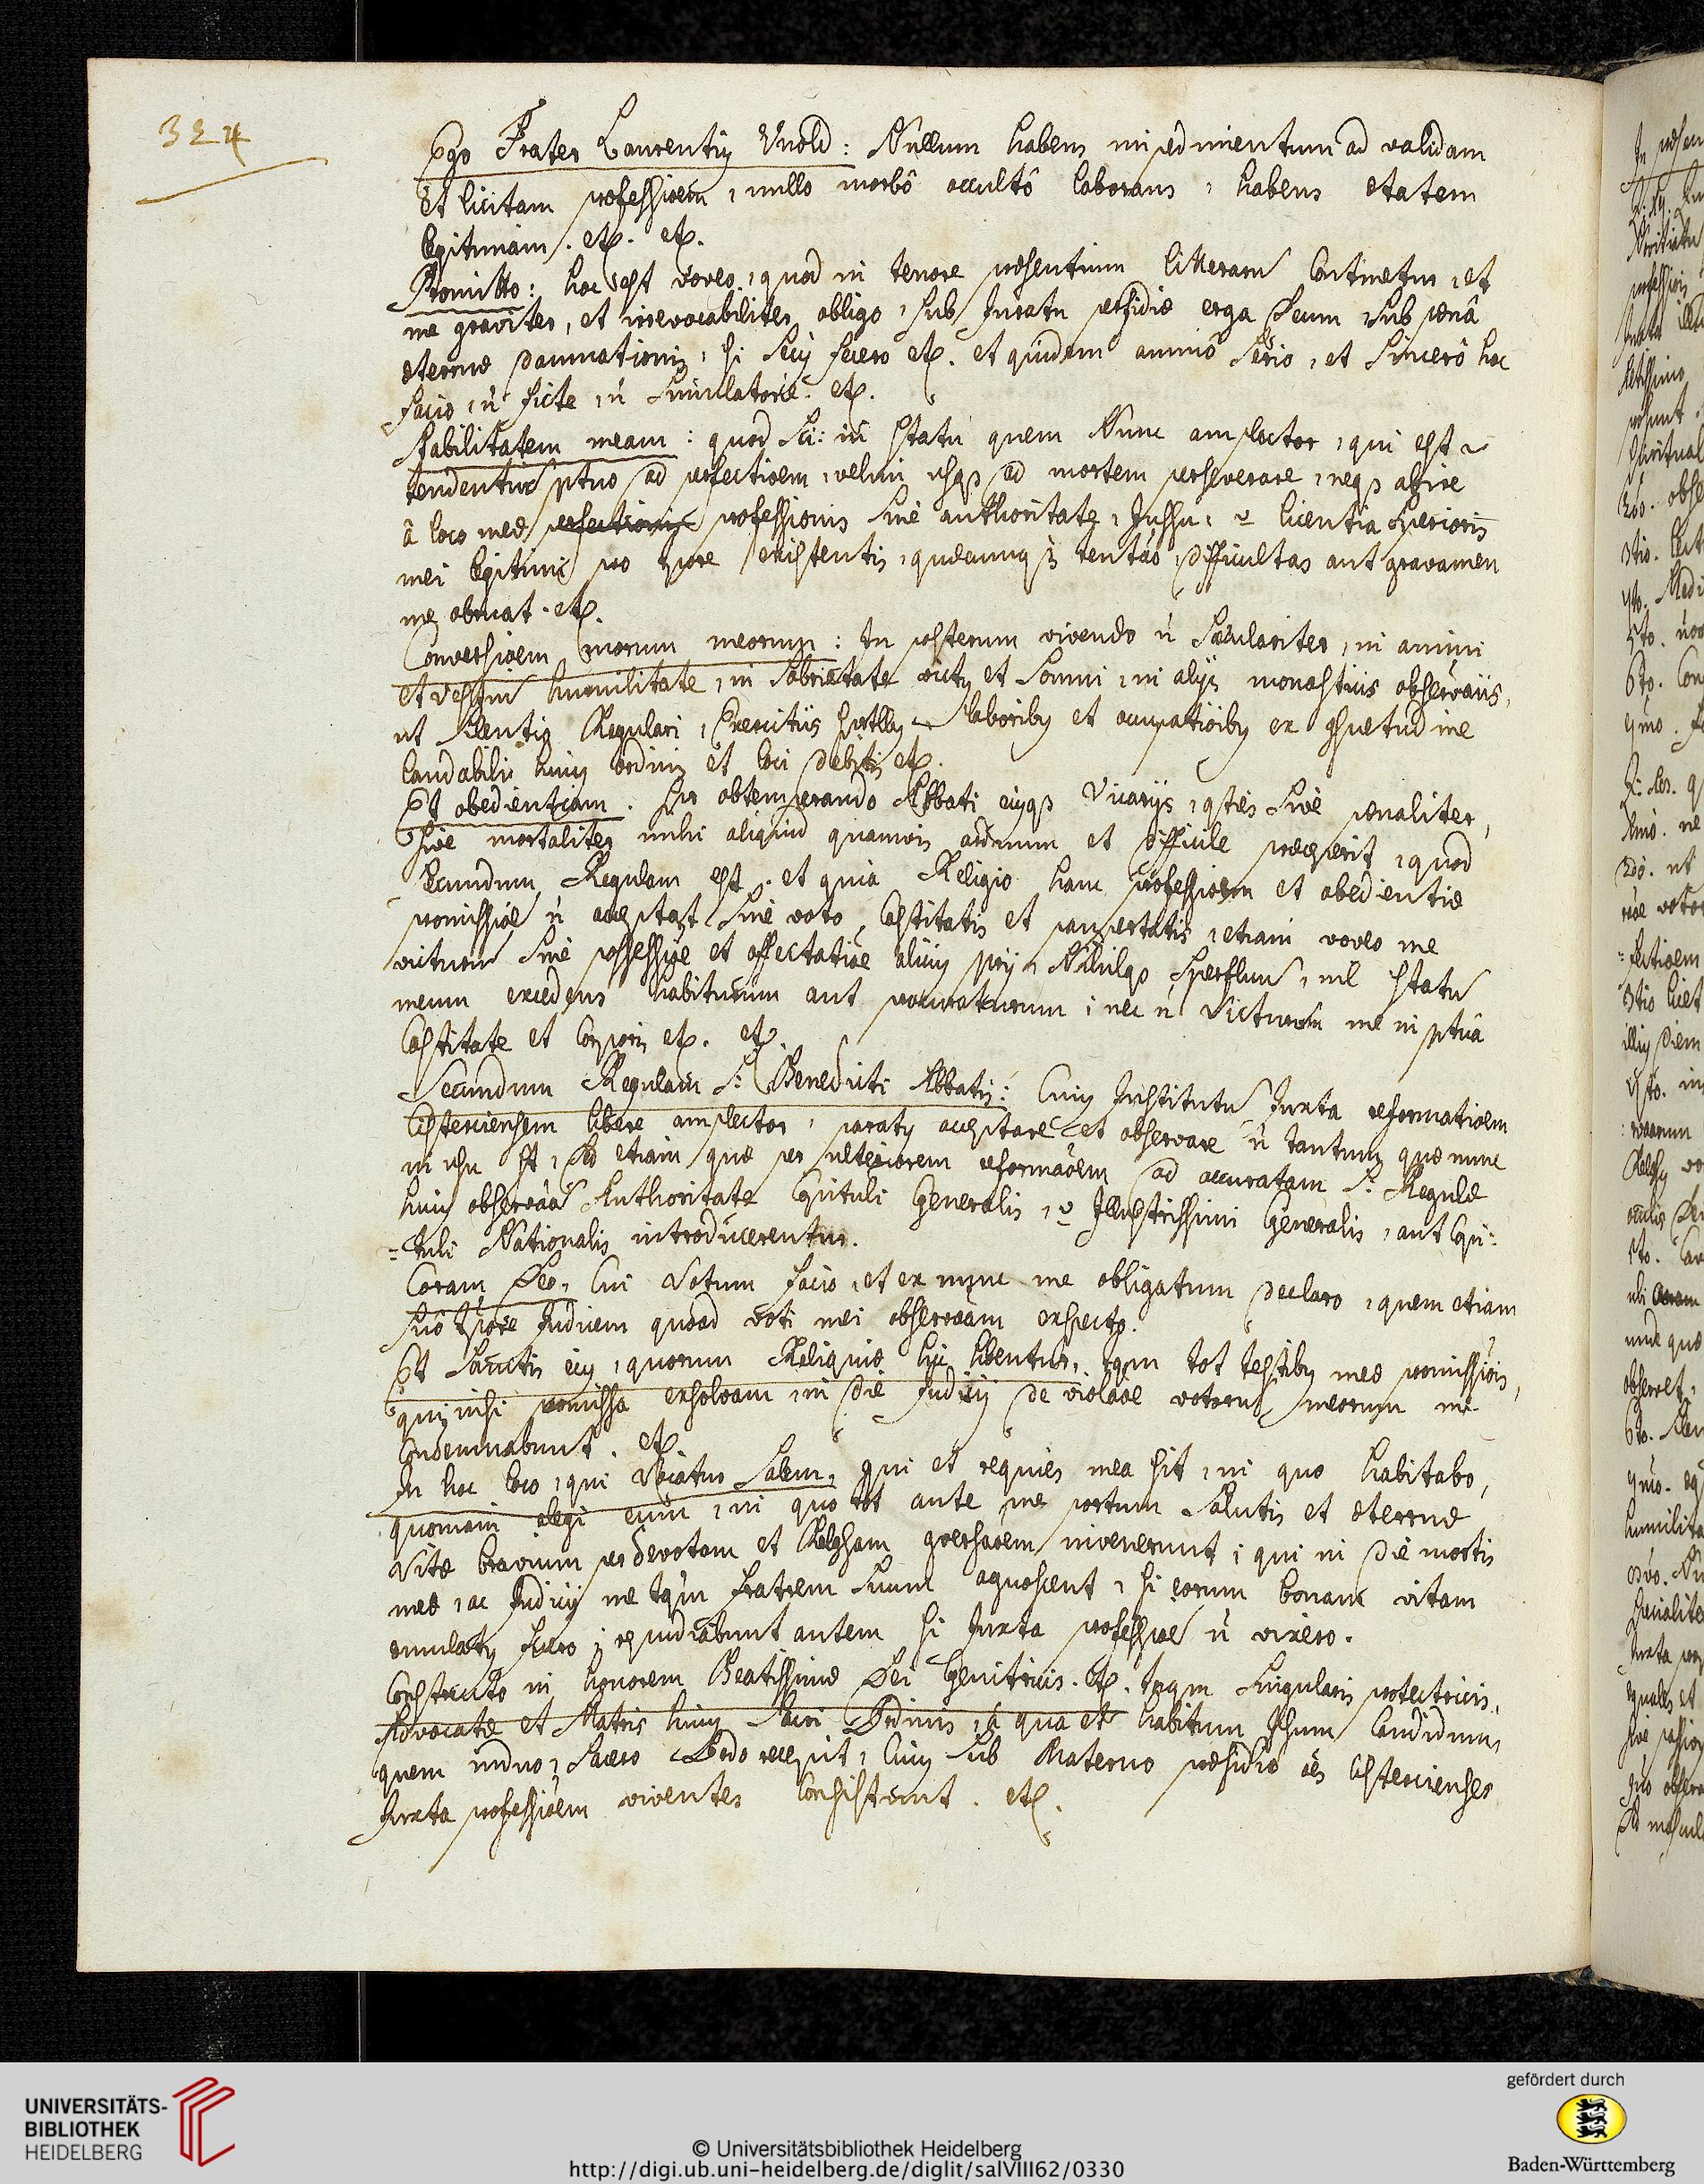 324
Ego Frater Laurentiꝰ Unold: Nullum habens impedimentum ad validam
et licitam professioēm, nullo morbô occultô laborans, habens ætatem
legitimam. etc. etc.
Promitto: hoc est voveo, quod in tenore præsentium litterarū continetur, et
me graviter, et irrevocabiliter obligo, sub Juratu perfidiæ erga Deum, sub pœnâ
æternæ damnationis, si secꝰ fecero etc. et quidem animô seriô, et sincerô hoc
facio, ñ ficte, ñ simulatorie. etc.
Stabilitatem meam: quod sci: in statu quem Nunc amplector, qui est
tendentiæ ad perfectioem, velim usqꝫ ad mortem perseverare, neqꝫ abire
à loco meæ perfectionis professionis sine authoritate, Jussu, licentia Superioris
mei legitimi pro tpore existentis, quæcunqꝫ difficultas aut gravamen
me obruat. etc.
Conversioem morum meorum: In posterum vivendo ñ sæculariter, in animi
et vestiū humilitate, in sobrietate victꝰ et somni, in alijs monasticis observāiis,
ut silentio Regulari, Exercitiis laboribꝰ et occupatioibꝰ ex
laudabili huiꝰ ordinis et loci debitis etc.
Et obedientiam. obtemperando Abbati eiꝰqꝫ Vicarijs, sive pœnaliter,
sive mortaliter mihi aliquid quamvis arduum et difficile præceperit, quod
secundum Regulam est. et quia Religio hanc professioem et obedientiæ
promissioē ñ acceptat sine voto Castitatis et paupertatis, etiam voveo me
victurū sine possessioe et affectatioe alicuiꝰ Nihilqꝫ superfluū, nec statū
meum excedens habiturum aut procuraturum; nec ñ victurum me in
Castitate et Corporis etc. etc.
Secundum Regulam S: Benedicti Abbatis: Cuiꝰ Institutū Juxta reformatioem
Cisterciensem libere amplector, paratꝰ acceptare et observare ñ tantum quæ nunc
in usu st, sed etiam quæ per ulteriorem reformāoem ad accuratam S: Regulæ
huiꝰ observāā Authoritate Capituli Generalis, Illustrissimi Generalis, aut Capi:
=tuli Nationalis introducerentur.
Coram Deo, Cui Votum facio, et ex nunc me obligatum declaro, quem etiam
suô tpore Judicem quoad voti mei observāām exspecto.
Et Sanctis eiꝰ, quorum Reliquiæ hic hbentur, tqm tot testibꝰ meæ promissiois,
qui, nisi promissa exsolvam, in die Judicij de violāoe votorū meorum me
condemnabunt. etc.
In hoc loco, qui vocatur Salem, qui et requies mea sit, in quo habitabo,
quoniam elegi eum, in quo tot ante me portum salutis et æternæ
vitæ bravium per devotam et Relgsam inveneruntꝫ qui in die mortis
meæ, ac Judicij me tqm fratrem suum agnoscent, si eorum bonam vitam
æmulatꝰ fuero; repudiabunt autem si Juxta professioē ñ vixero.
Constructo in honorem Beatissimæ Dei Genitricis. etc. tqm singularis protectricis,
Advocatæ et Matris huiꝰ Sacri Ordinis, à qua et habitum candidum,
quem induo, sacer Ordo recepit, cuiꝰ sub Materno præsidio oēs Cistercienses
Juxta professioem viventes consistunt. etc.
UNIVERSITÄTS-
BIBLIOTHEK
HEIDELBERG
© Universitätsbibliothek Heidelberg
http://digi.ub.uni-heidelberg.de/diglit/salVIII62/0330
gefördert durch
Baden-Württemberg